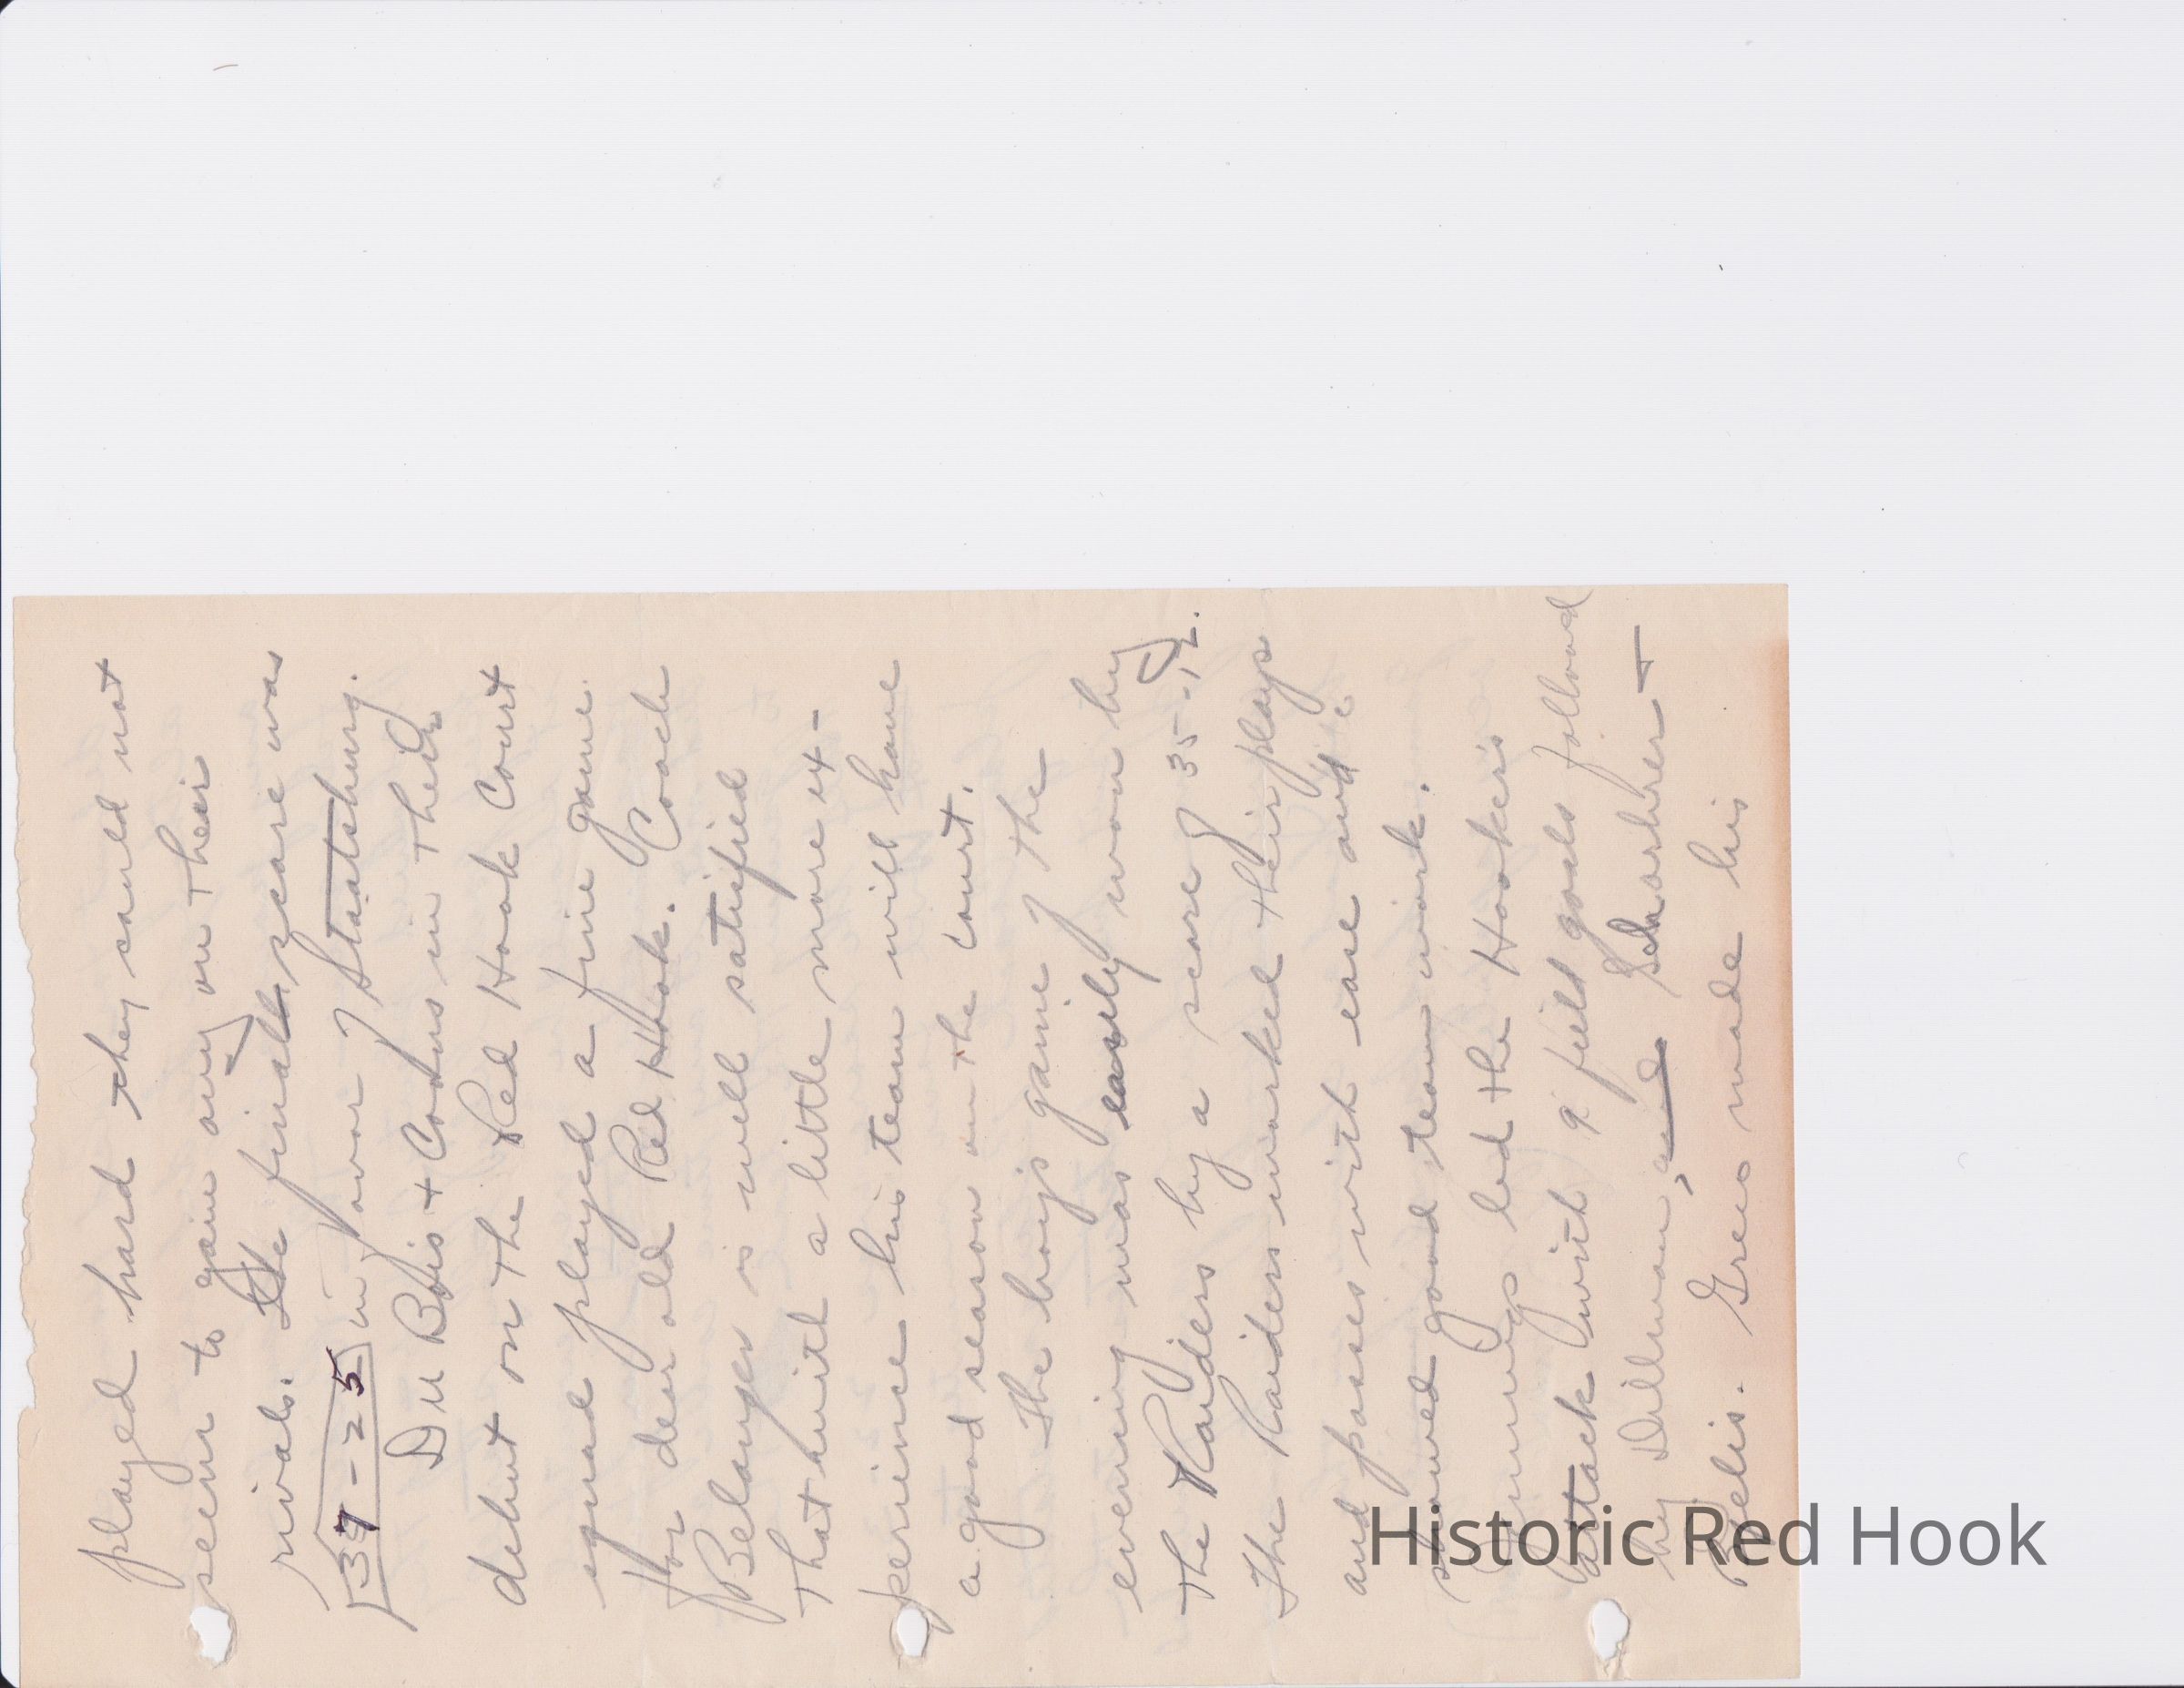 played hard they could not
seem to gain any on their
rivals. The final score was
37-25 in favor of Staatsburg.
Du Bois + Cookus in their
debut on the Red Hook Court
equad played a fine game
for dear old Red Hook. Coach
Belanger is well satified
that with a little more ex-
perience his team will have
a good season on the court.
The boys game of the
evening was easily won by
the Raiders by a score of 35-12.
The Raiders worked their plays
and passes with ease and
showed good team work.
led the Hookers
attack with 9 field goals followed
by Dillman, and Scharbher +
Pelis. Greco made his
Historic Red Hook